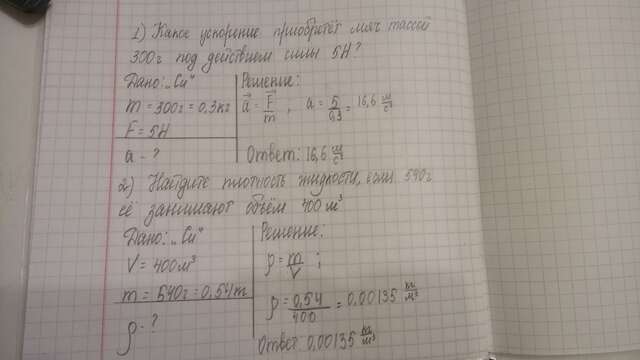 1) Какое ускорение приобретёт мяч массой
300г под действием силы 5Н?
Дано: „Си"
m = 300г = 0,3кг
F = 5Н
a - ?
Решение:
a = F/m , a = 5/0,3 = 16,6 м/с²
Ответ: 16,6 м/с²
2) Найдите плотность жидкости, если 540г
её занимают объём 400м³
Дано: „Си"
V = 400м³
m = 540г = 0,54т
ρ - ?
Решение:
ρ = m/V ;
ρ = 0,54/400 = 0,00135 кг/м³
Ответ 0,00135 кг/м³